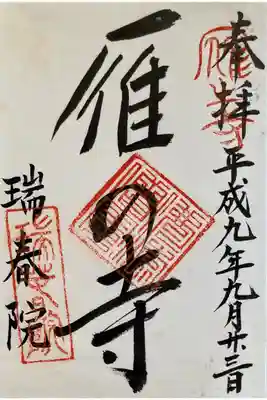 奉拝 平成九年九月廿三日
雁の寺
瑞春院